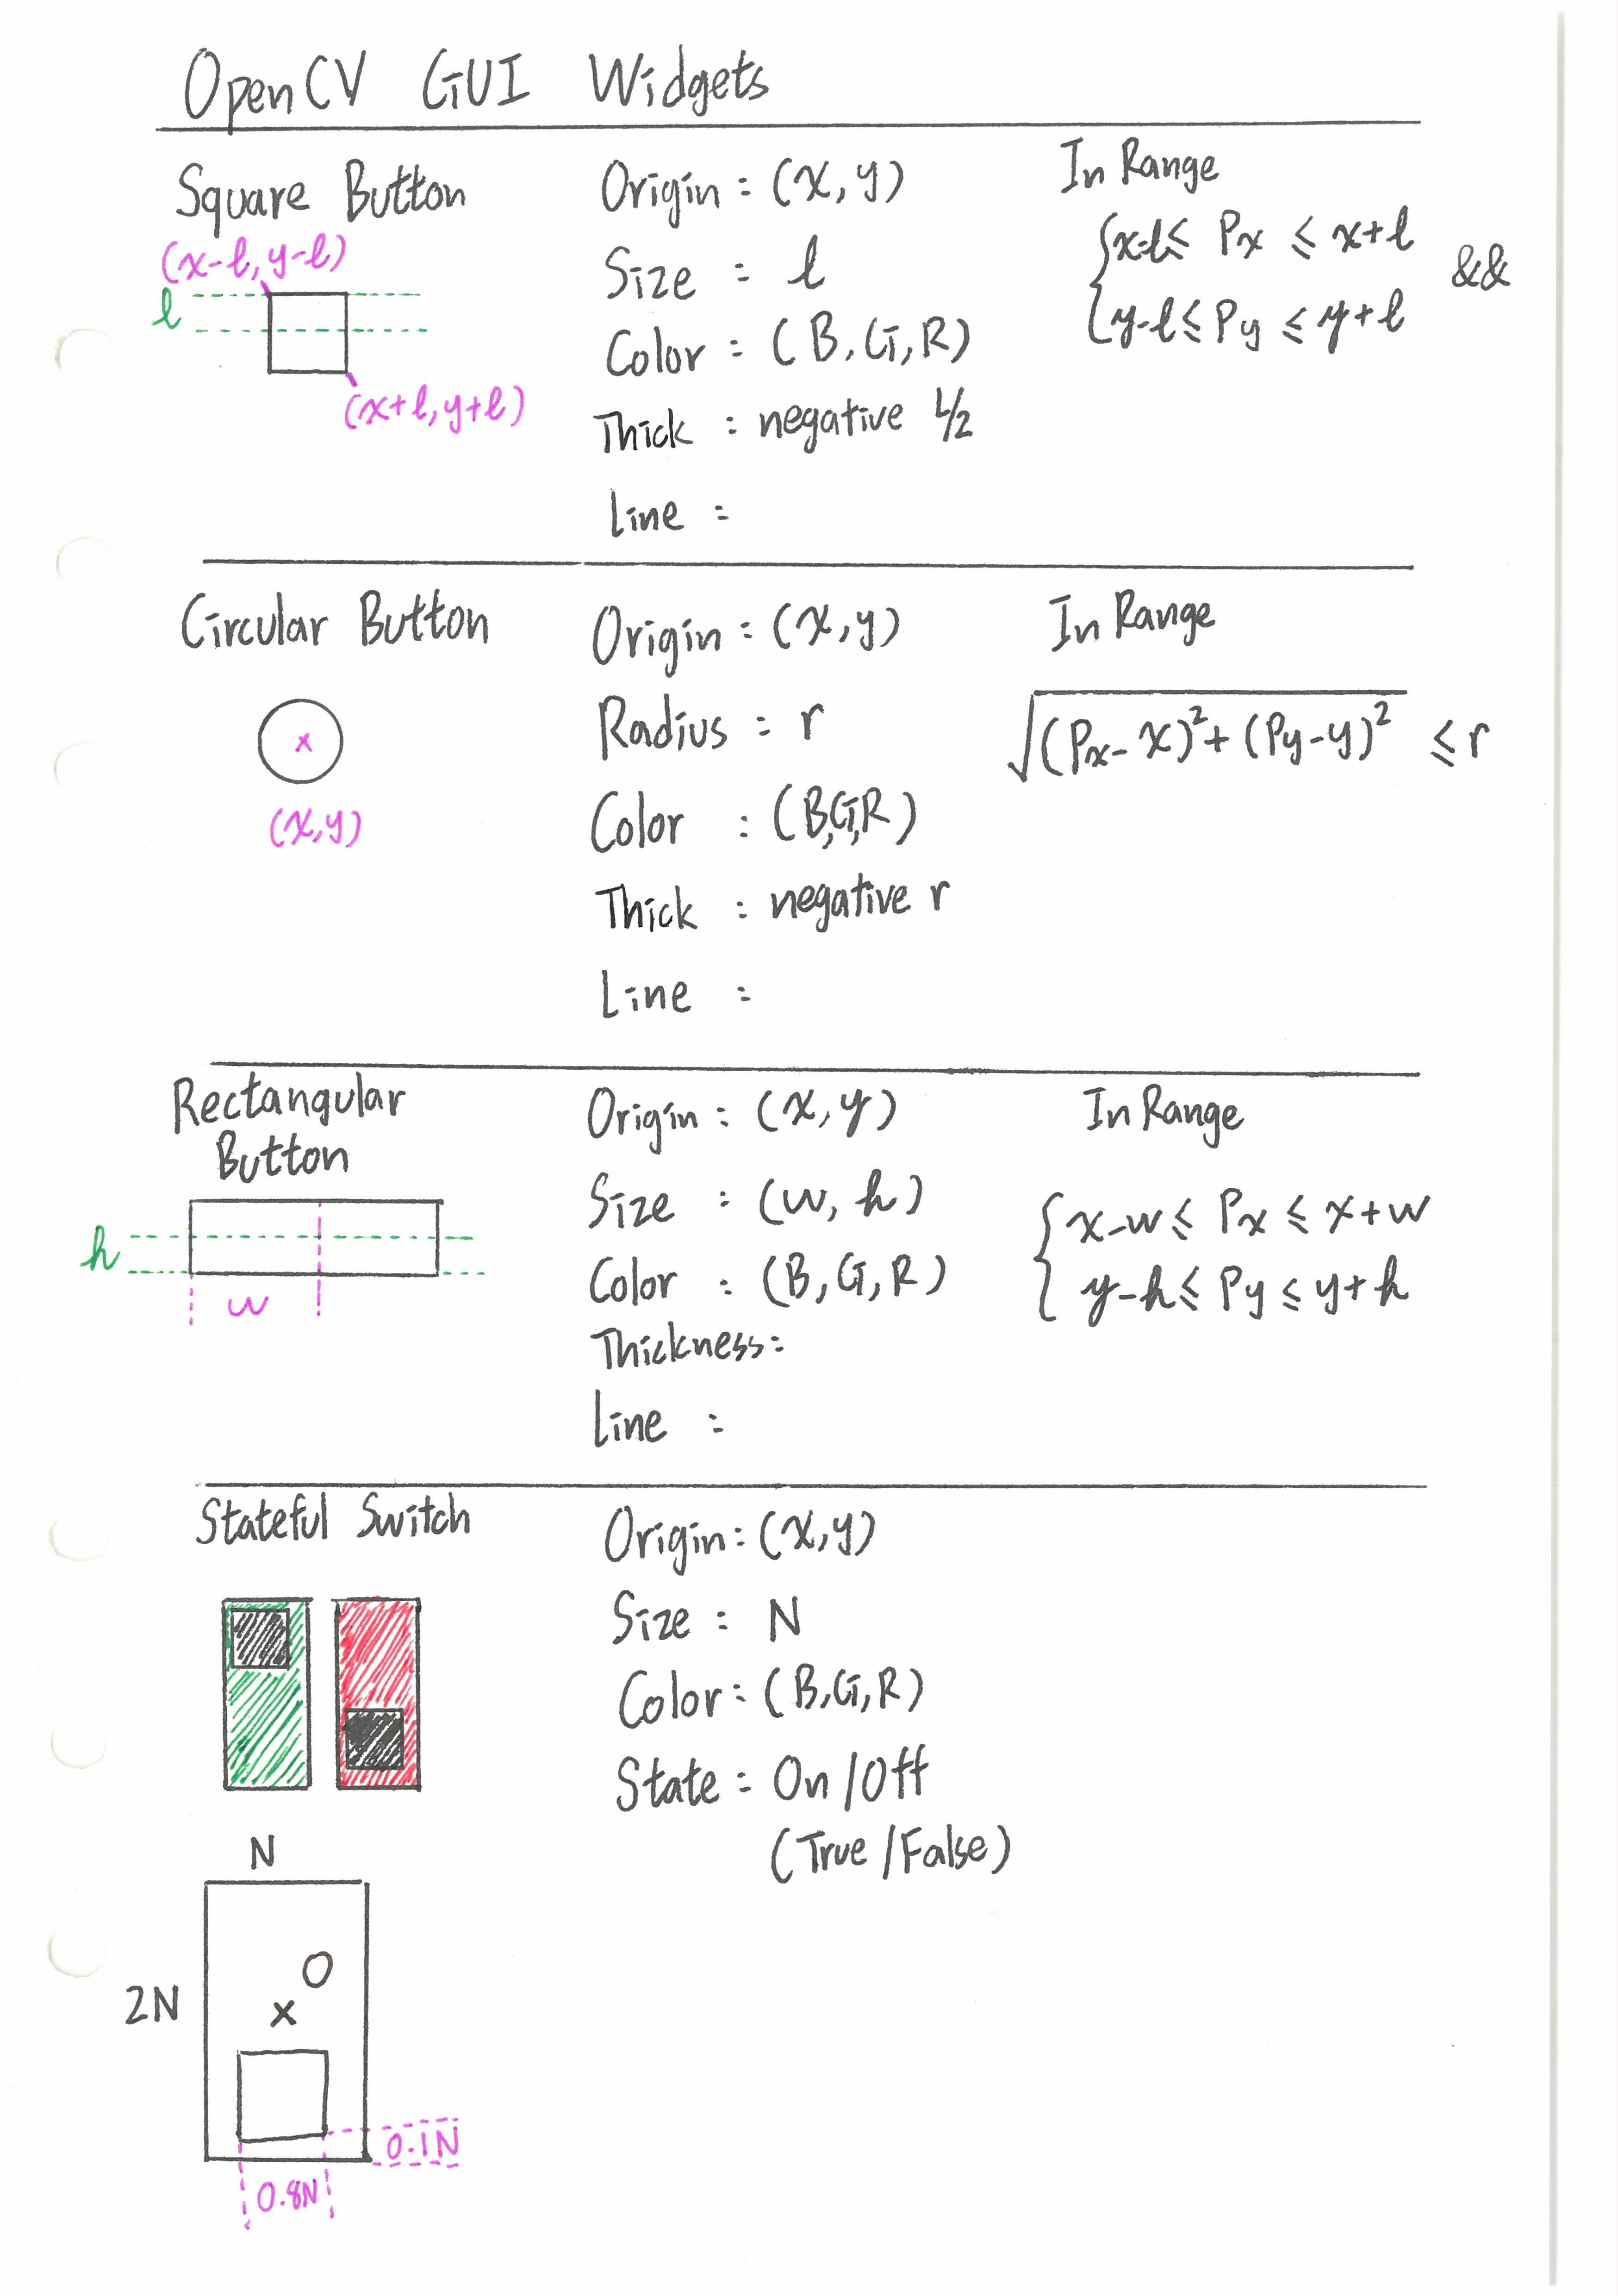 OpenCV GUI Widgets
Square Button
(x-l, y-l)
l
(x+l, y+l)
Origin : (x, y)
Size : l
Color : (B, G, R)
Thick : negative L/2
Line :
In Range
{ x-l ≤ Px ≤ x+l
&&
{ y-l ≤ Py ≤ y+l
Circular Button
x
(x, y)
Origin : (x, y)
Radius : r
Color : (B, G, R)
Thick : negative r
Line :
In Range
√(Px - x)² + (Py - y)² ≤ r
Rectangular
Button
h
w
Origin : (x, y)
Size : (w, h)
Color : (B, G, R)
Thickness :
Line :
In Range
{ x-w ≤ Px ≤ x+w
{ y-h ≤ Py ≤ y+h
Stateful Switch
Origin : (x, y)
Size : N
Color : (B, G, R)
State : On / Off
(True / False)
N
2N
O
x
0.1N
0.8N